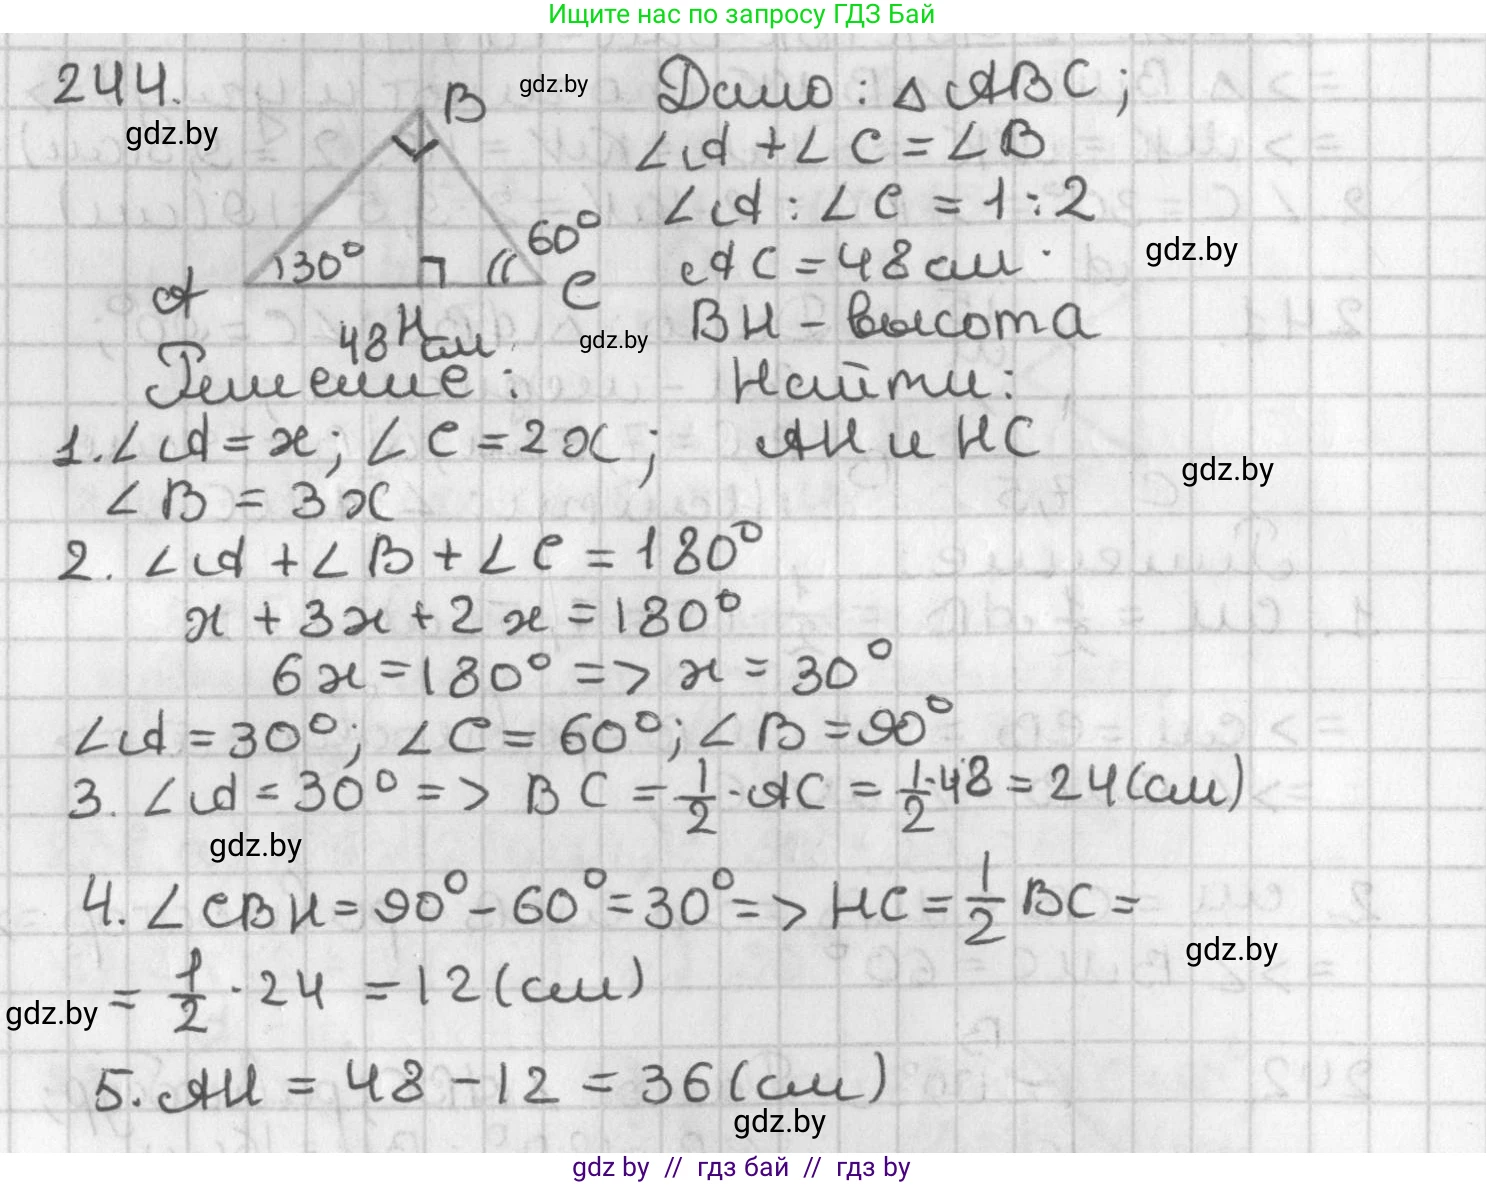 Ищите нас по запросу ГДЗ Бай
244.
gdz.by
B
gdz.by
Дано: △ ABC;
∠A + ∠C = ∠B
∠A : ∠C = 1 : 2
AC = 48 см
gdz.by
BH - высота
Найти:
AH и HC
30°
60°
A
H
C
48 см
gdz.by
Решение:
1. ∠A = x; ∠C = 2x;
gdz.by
∠B = 3x
2. ∠A + ∠B + ∠C = 180°
x + 3x + 2x = 180°
6x = 180° => x = 30°
∠A = 30°; ∠C = 60°; ∠B = 90°
3. ∠A = 30° => BC = 1/2 · AC = 1/2 · 48 = 24 (см)
gdz.by
4. ∠CBH = 90° - 60° = 30° => HC = 1/2 BC =
gdz.by
= 1/2 · 24 = 12 (см)
gdz.by
5. AH = 48 - 12 = 36 (см)
gdz.by
gdz by // гдз бай // гдз by